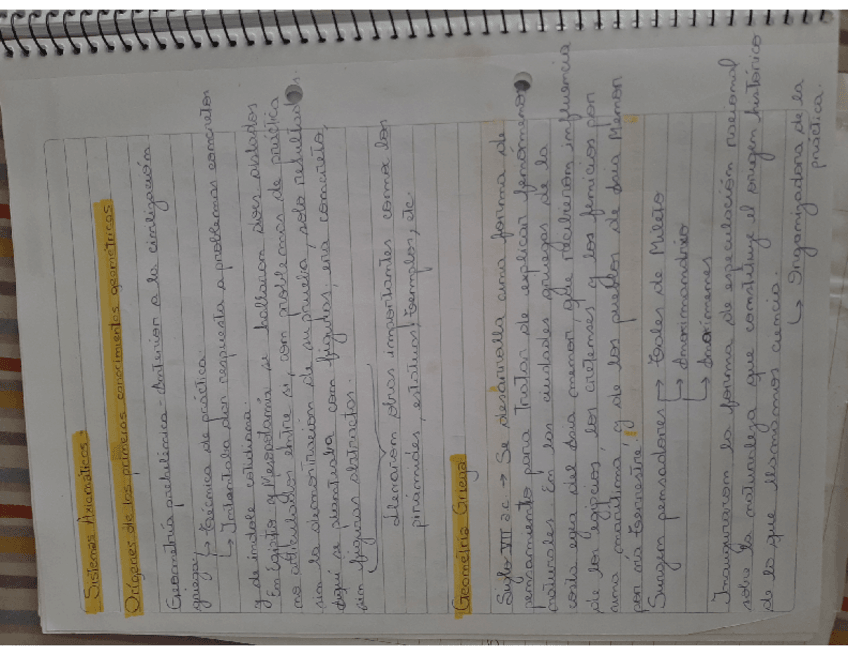 Sistemas Axiomáticos.
Orígenes de los primeros conocimientos geométricos
Geometría prehelénica - Anterior a la civilización
griega, → Técnica de práctica.
↳ Intentaba dar respuesta a problemas concretos
y de índole cotidiana.
En Egipto y Mesopotamia se hallaron
no articulados entre sí, con problemas de práctica
sin la demostración de su prueba, solo resultados.
Aquí se planteaba con figuras, era concreto,
sin figuras abstractas.
Llevaron obras importantes como las
pirámides, estatuas, templos, etc.
Geometría Griega
Siglo VII a.c → Se desarrolla una forma de
pensamiento para tratar de explicar fenómenos
naturales. En las ciudades griegas de la
costa egea del Asia menor que recibieron influencia
de los egipcios, los cretenses y los fenicios por
una marítima, y de los pueblos de Asia Menor
por vía terrestre.
Surgen pensadores → Tales de Mileto
↳ Anaximandro
↳ Anaxímenes
Inauguraron la forma de especulación racional
sobre la naturaleza que constituye el origen histórico
de lo que llamamos ciencia.
↳ Organizadora de la
práctica.